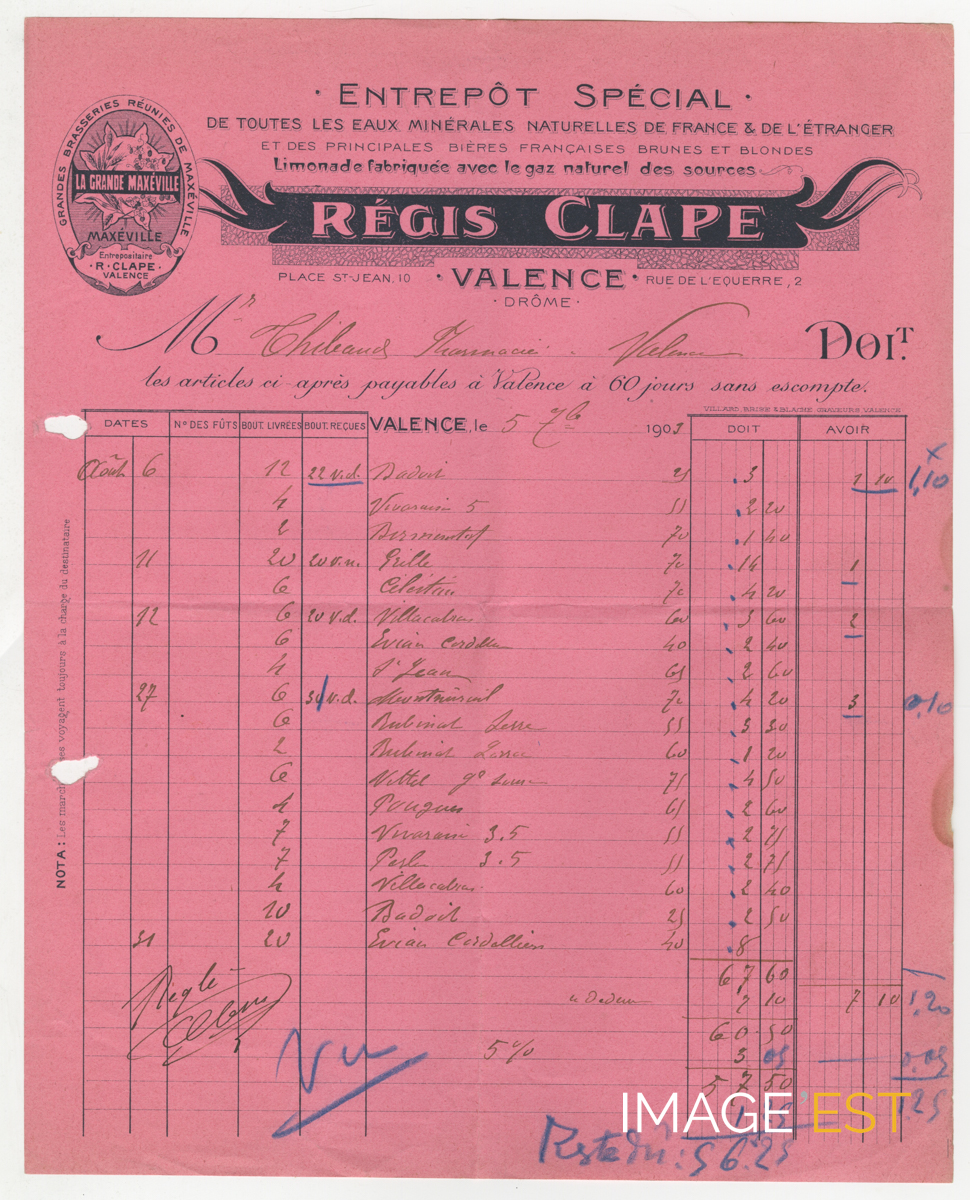 · ENTREPÔT SPÉCIAL ·
DE TOUTES LES EAUX MINÉRALES NATURELLES DE FRANCE & DE L'ÉTRANGER
ET DES PRINCIPALES BIÈRES FRANÇAISES BRUNES ET BLONDES
Limonade fabriquée avec le gaz naturel des sources
GRANDES BRASSERIES RÉUNIES DE MAXÉVILLE
LA GRANDE MAXÉVILLE
MAXÉVILLE
Entrepositaire
· R · CLAPE ·
VALENCE
RÉGIS CLAPE
PLACE ST-JEAN, 10 · VALENCE · RUE DE L'EQUERRE, 2
· DRÔME ·
Mr Thibaud Pharmacie Valence DOIT.
les articles ci-après payables à Valence à 60 jours sans escompte.
VILLARD BROSE & BLACHE GRAVEURS VALENCE
DATES Nº DES FÛTS BOUT. LIVRÉES BOUT. REÇUES VALENCE, le 5 7bre 1903 DOIT AVOIR
Août 6 12 22 v.d. Badoit 25 3 1 10 1,10
4 Vivarais 5 55 2 20
2 70 1 40
11 20 20 v.n. Grille 70 14 1
6 Célestins 70 4 20
12 6 20 v.d. Villacabras 60 3 60 2
6 Evian Cordelliers 40 2 40
4 St Jean 65 2 60
27 6 v.d. Montmirail 70 4 20 3 0,10
6 Rubinat Serre 55 3 30
2 Rubinat 60 1 20
6 Vittel gde source 75 4 50
4 Pougues 65 2 60
7 Vivarais 3.5 55 2 75
7 Perle 3.5 55 2 75
4 Villacabras 60 2 40
10 Badoit 25 2 50
31 20 Evian Cordelliers 40 8
67 60
à déduire 7 10 7 10 1,20
60 50
5 % 3 05 0,05
57 50
1 25 125
Réglé
Clape
Vu
Reste dû : 56.25
NOTA : Les marchandises voyagent toujours à la charge du destinataire
IMAGE'EST